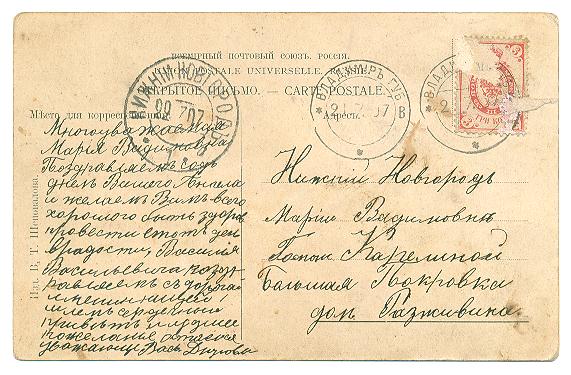 ВСЕМІРНЫЙ ПОЧТОВЫЙ СОЮЗЪ. РОССІЯ.
UNION POSTALE UNIVERSELLE. RUSSIE.
ОТКРЫТОЕ ПИСЬМО. — CARTE POSTALE.
Мѣсто для корреспонденціи
Адресъ.
НИЖНІЙ НОВГОРОДЪ
7.07
ВЛАДИМІРЪ ГУБ.
21.7.07
В
ВЛАДИМ
2
Многоуважаемая
Марія Вадимовна
Поздравляемъ съ
днемъ Вашего Ангела
и желаемъ Вамъ всего
хорошаго быть здоров
провести этотъ ден
въ радости, Василія
Васильевича позд
равляемъ съ дорогой
имениницей
привѣтъ и лучшее
пожеланіе
уважающ Вась
Нижній Новгородъ
Маріи Вадимовнѣ
Госпож Карелиной
Большая Покровка
дом
Изд. В. Т.